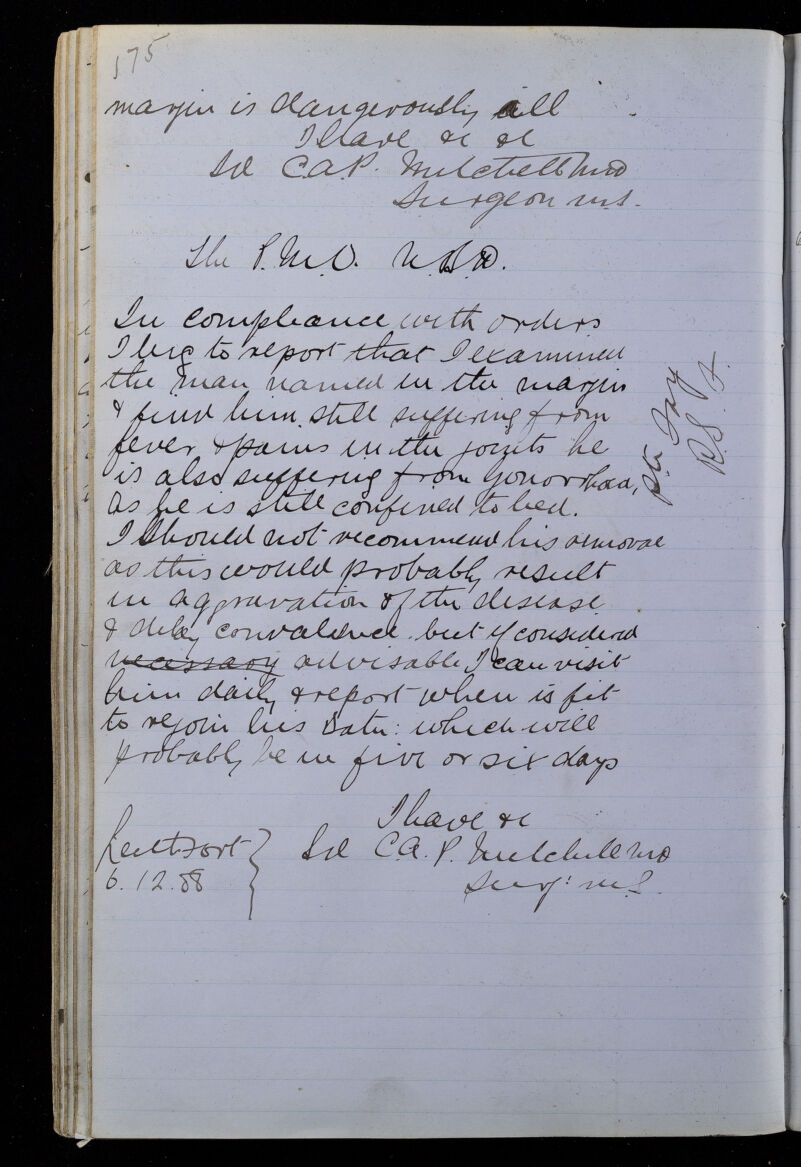 175
margin is dangerously ill
I have &c &c
Sd C.A.P. Mitchell MD
Surgeon M.S.
The P.M.O. N.B.D.
In compliance with orders
I beg to report that I examined
the man named in the margin
& find him still suffering from
fever & pains in the joints he
is also suffering from gonorrhoea,
as he is still confined to bed.
I should not recommend his removal
as this would probably result
in aggravation of the disease
& delay convalence but if considered
necessary advisable I can visit
him daily & report when is fit
to rejoin his Battn: which will
probably be in five or six days
Pte Jay
R.S.F.
I have &c
Sd C.A.P. Mitchell MD
Surg: M.S.
6.12.88